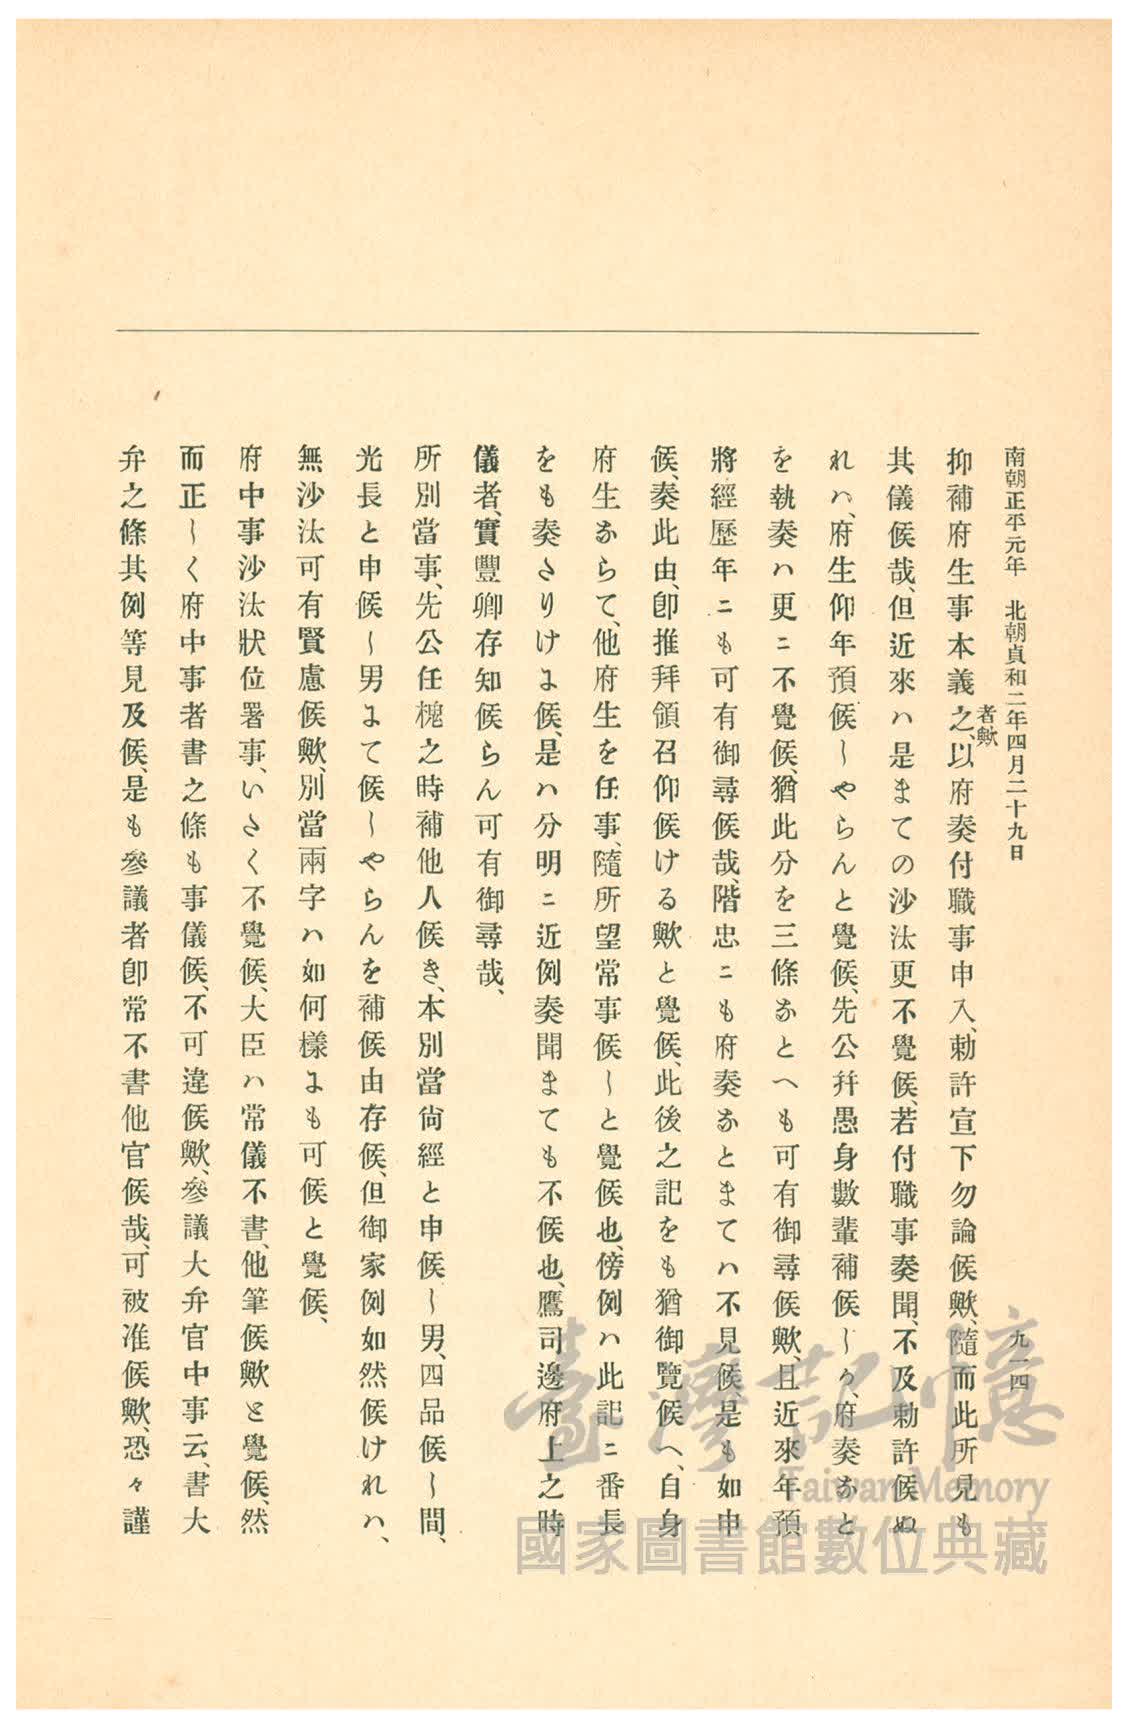 南朝正平元年　北朝貞和二年四月二十九日　九一四
者歟
抑補府生事本義之、以府奏付職事申入、勅許宣下勿論候歟、隨而此所見も
其儀候哉、但近來ハ是まての沙汰更不覺候、若付職事奏聞、不及勅許候ぬ
れハ、府生仰年預候しやらんと覺候、先公幷愚身數輩補候しか、府奏なと
を執奏ハ更ニ不覺候、猶此分を三條なとへも可有御尋候歟、且近來年預
將經歷年ニも可有御尋候哉、階忠ニも府奏なとまてハ不見候是も如申
候、奏此由、卽推拜領召仰候ける歟と覺候、此後之記をも猶御覽候へ、自身
府生ならて、他府生を任事、隨所望常事候しと覺候也、傍例ハ此記ニ番長
をも奏さりけよ候、是ハ分明ニ近例奏聞まても不候也、鷹司邊府上之時
儀者、實豐卿存知候らん可有御尋哉、
所別當事、先公任槐之時補他人候き、本別當尙經と申候し男、四品候し間、
光長と申候し男よて候しやらんを補候由存候、但御家例如然候けれハ、
無沙汰可有賢慮候歟、別當兩字ハ如何樣よも可候と覺候、
府中事沙汰狀位署事、いさく不覺候、大臣ハ常儀不書、他筆候歟と覺候、然
而正しく府中事者書之條も事儀候、不可違候歟、參議大弁官中事云、書大
弁之條其例等見及候、是も參議者卽常不書他官候哉、可被准候歟、恐々謹
臺灣記憶
Taiwan Memory
國家圖書館數位典藏